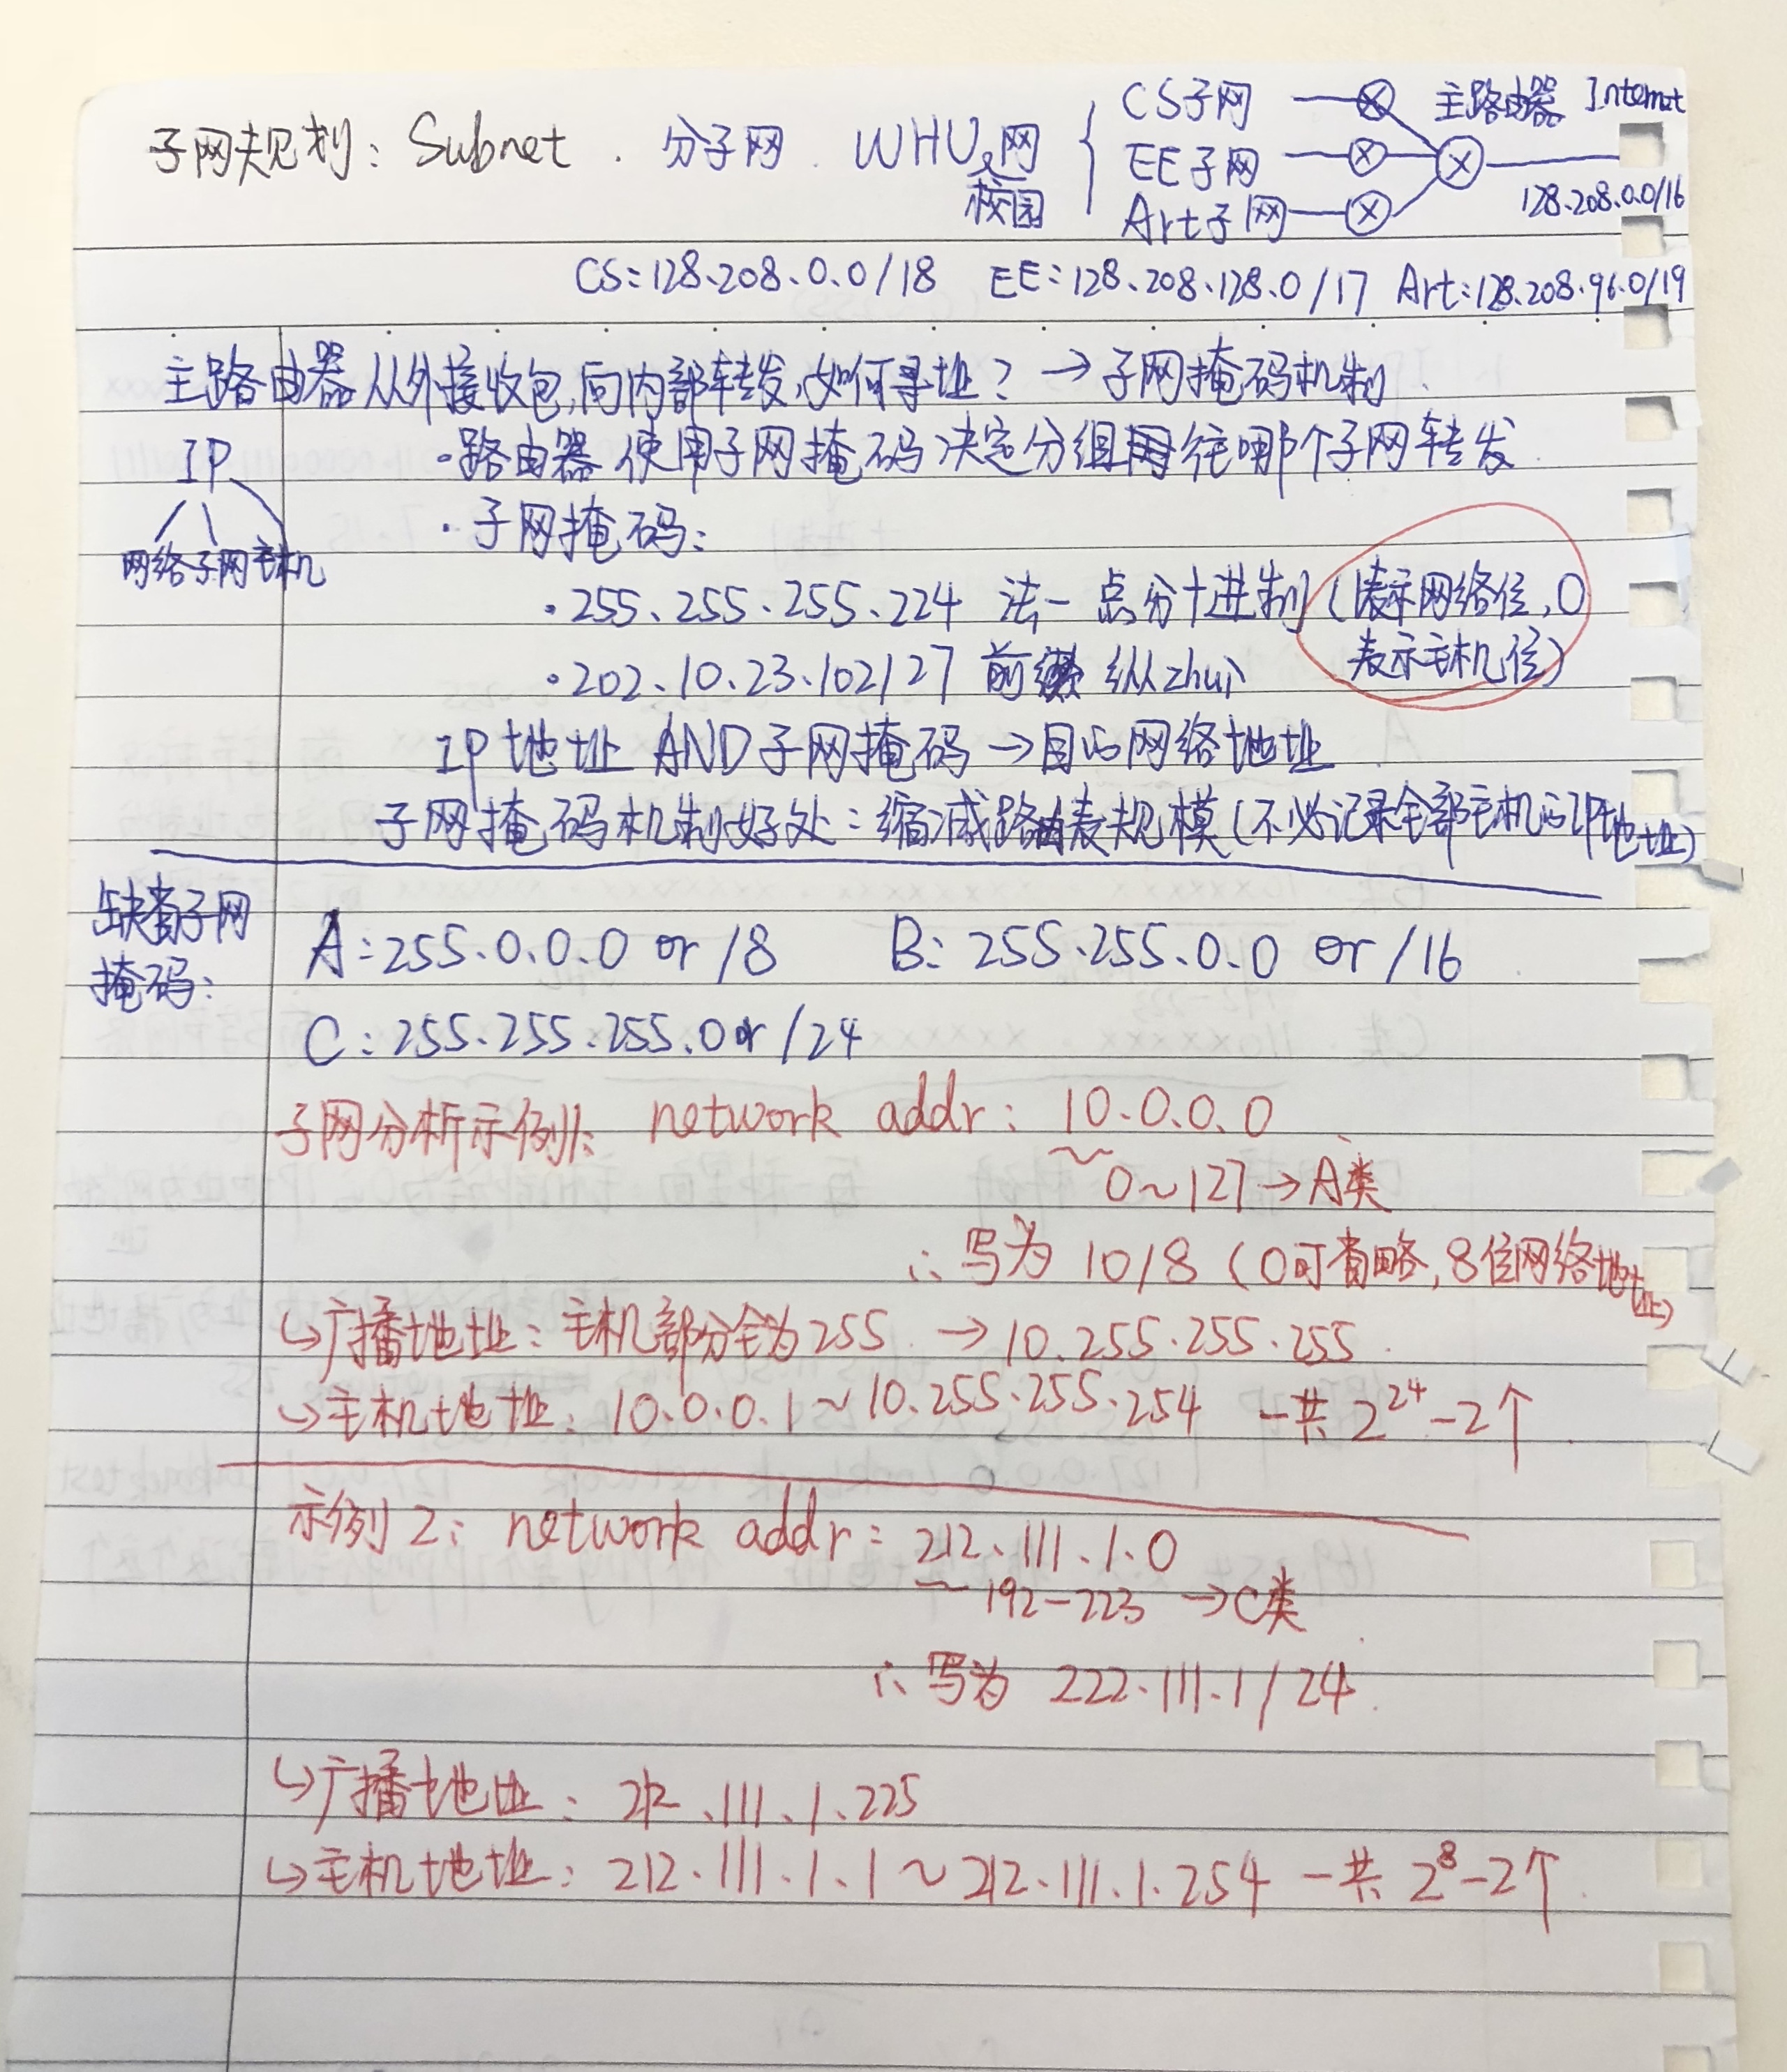 子网规划：Subnet . 分子网 . WHU校园网 { CS子网 主路由器 Internet
EE子网
Art子网 128.208.0.0/16
CS:128.208.0.0/18 EE:128.208.128.0/17 Art:128.208.96.0/19
主路由器从外接收包,向内部转发,如何寻址？→子网掩码机制.
IP
网络 子网 主机
·路由器使用子网掩码决定分组往哪个子网转发
·子网掩码：
·255.255.255.224 法一 点分十进制(1表示网络位,0
表示主机位)
·202.10.23.102/27 前缀 纵zhuì
IP地址 AND 子网掩码→目的网络地址
子网掩码机制好处：缩减路由表规模(不必记录全部主机的IP地址)
缺省子网
掩码：
A:255.0.0.0 or /8 B:255.255.0.0 or /16
C:255.255.255.0 or /24
子网分析示例1: network addr: 10.0.0.0
0~127→A类
∴写为 10/8 (0可省略,8位网络地址)
↳广播地址：主机部分全为255 →10.255.255.255
↳主机地址：10.0.0.1~10.255.255.254 一共2²⁴-2个
示例2: network addr: 212.111.1.0
192-223 →C类
∴写为 222.111.1/24
↳广播地址：212.111.1.225
↳主机地址：212.111.1.1~212.111.1.254 一共2⁸-2个